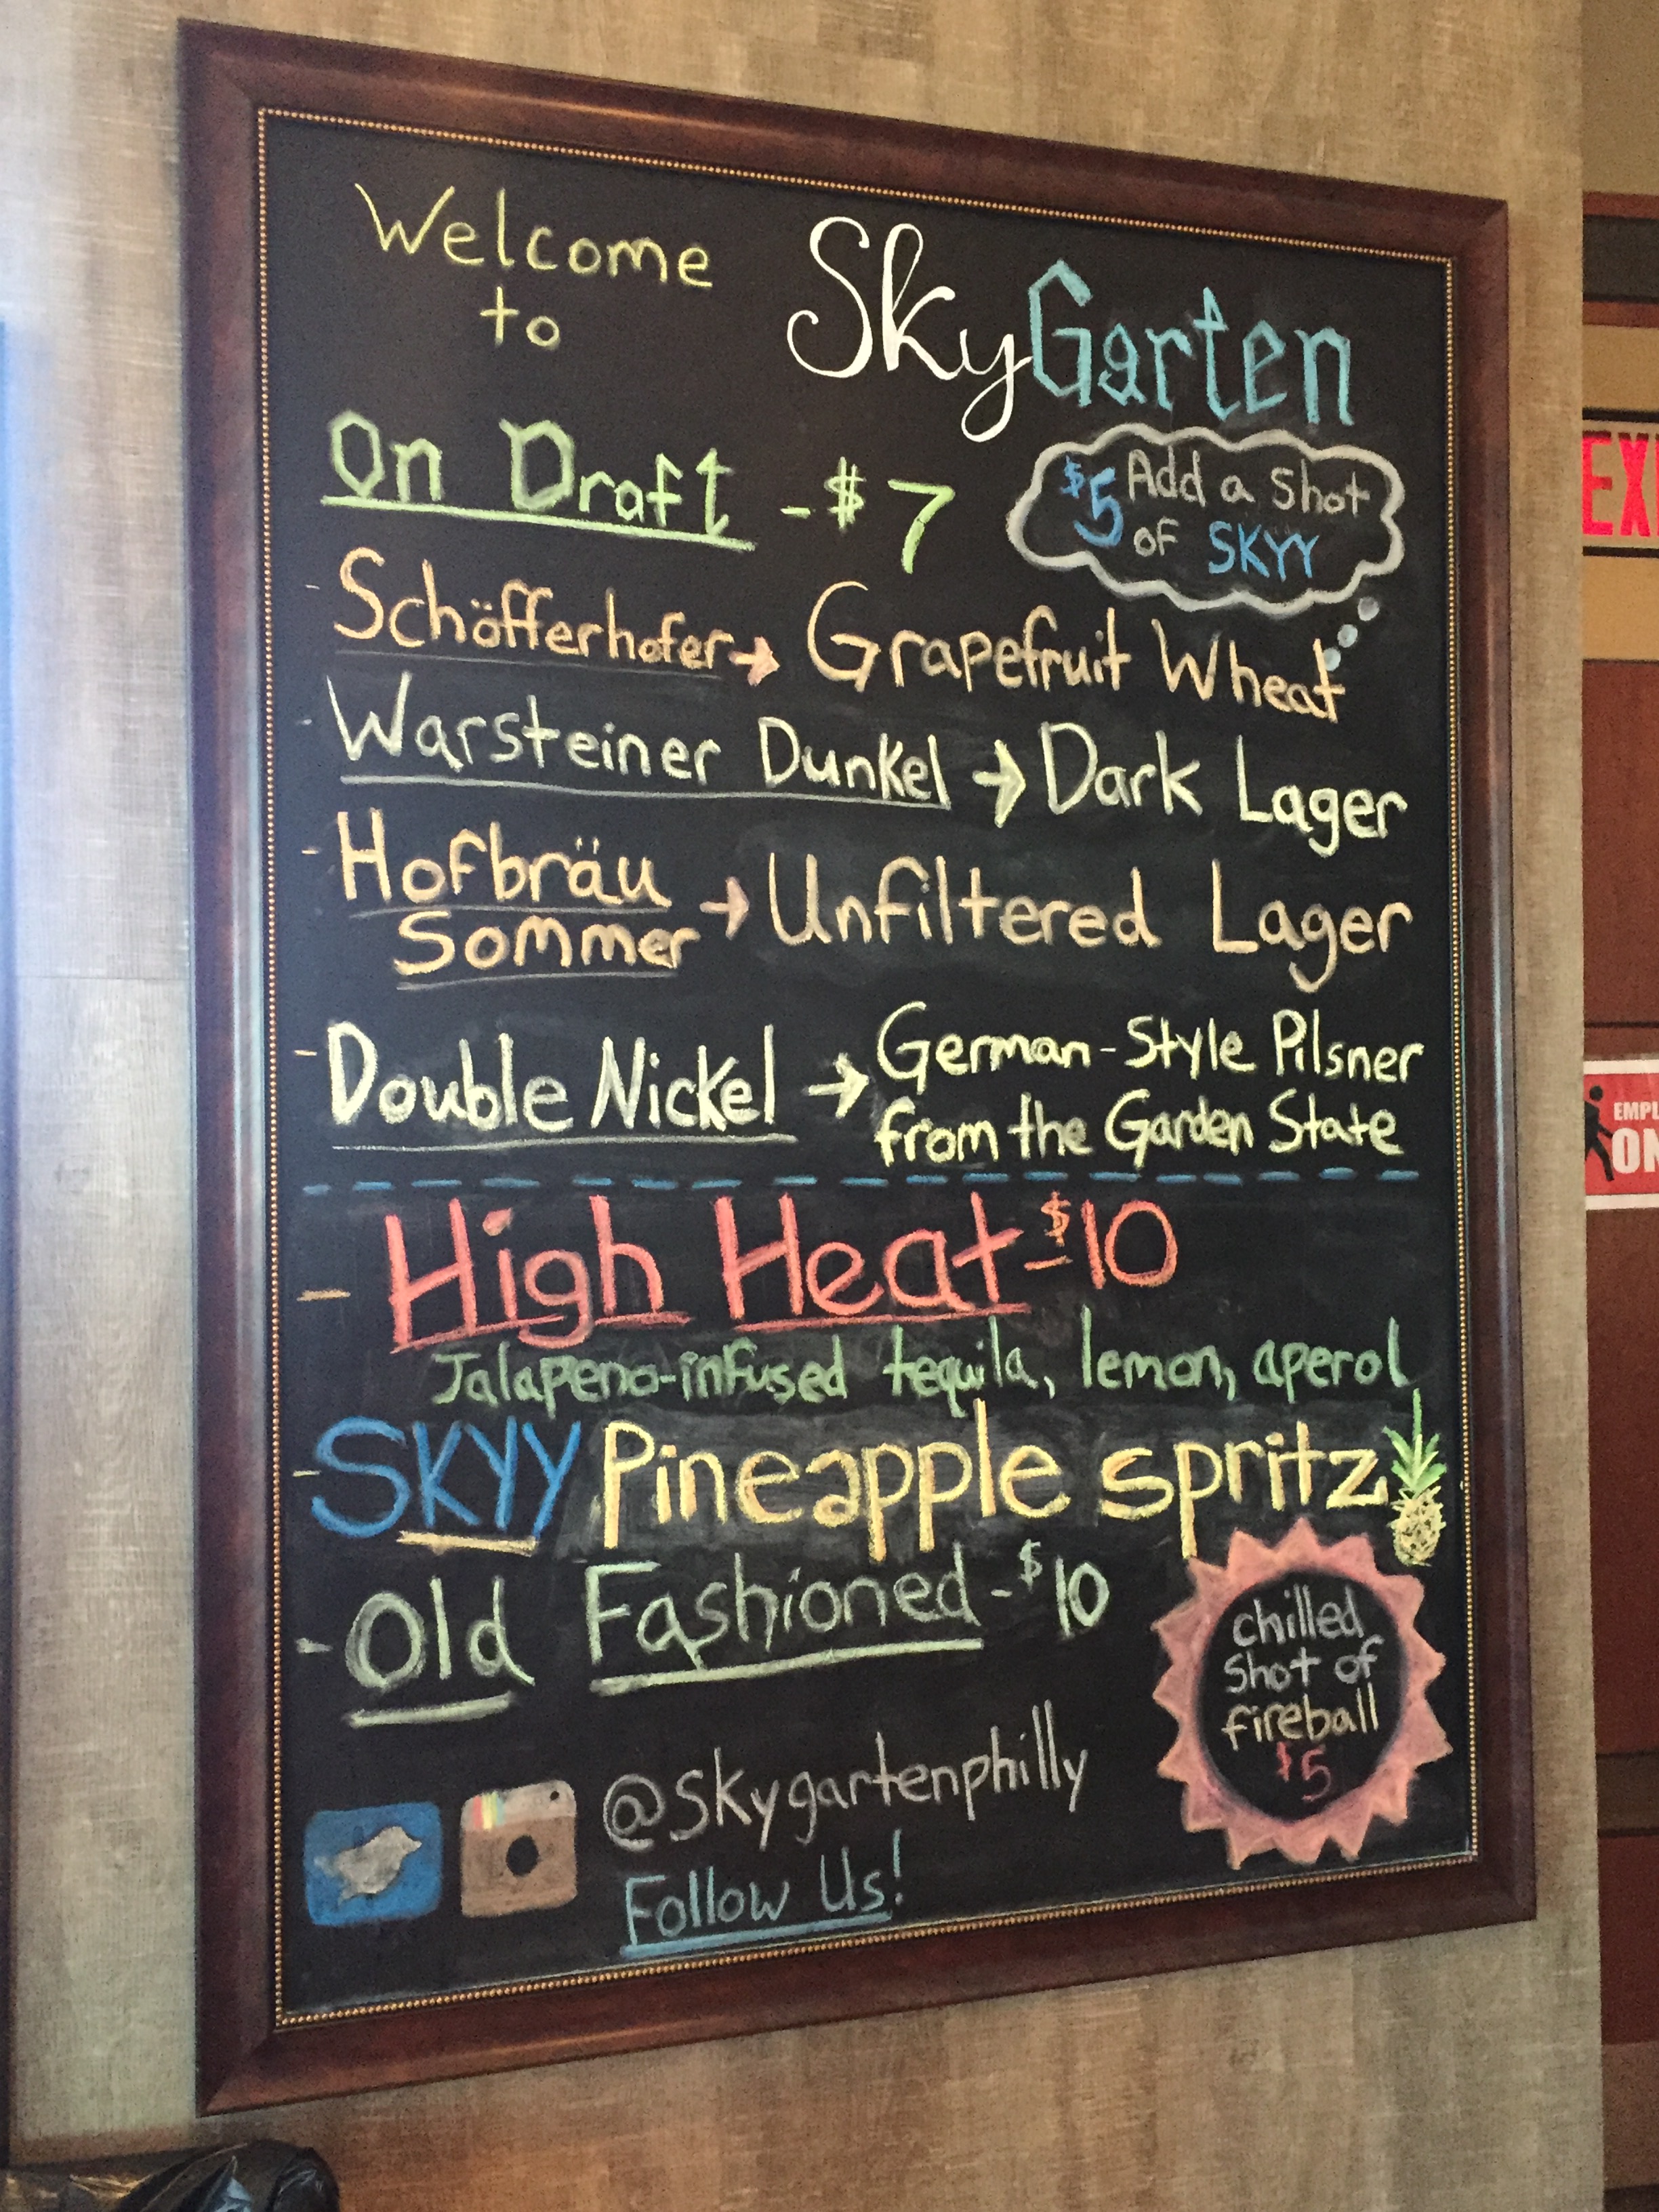 Welcome
to
SkyGarten
On Draft - $7
$5 Add a shot
of SKYY
- Schöfferhofer → Grapefruit Wheat
- Warsteiner Dunkel → Dark Lager
- Hofbräu
Sommer → Unfiltered Lager
- Double Nickel → German-Style Pilsner
from the Garden State
- High Heat - $10
Jalapeno-infused tequila, lemon, aperol
- SKYY Pineapple spritz
- Old Fashioned - $10
chilled
shot of
fireball
$5
@skygartenphilly
Follow Us!